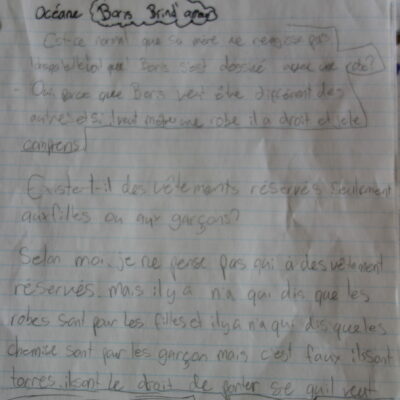 Océane Boris Brind'amour
Est-ce normal que sa mère ne réagisse pas
Boris s'est déguisé avec une robe?
- Oui parce que Boris veut être différent des
autres et si veut mettre une robe il a droit et je le
comprens
Existert-il des vêtements réservés seulement
aux filles ou aux garçons?
Selon moi, je ne pense pas qui a des vêtement
réservés. mais il y a n'a qui dis que les
robes sont pour les filles et il y a n'a qui dis que les
chemise sont pour les garçon mais c'est faux ils sont
le droit de porter se qu'il veut